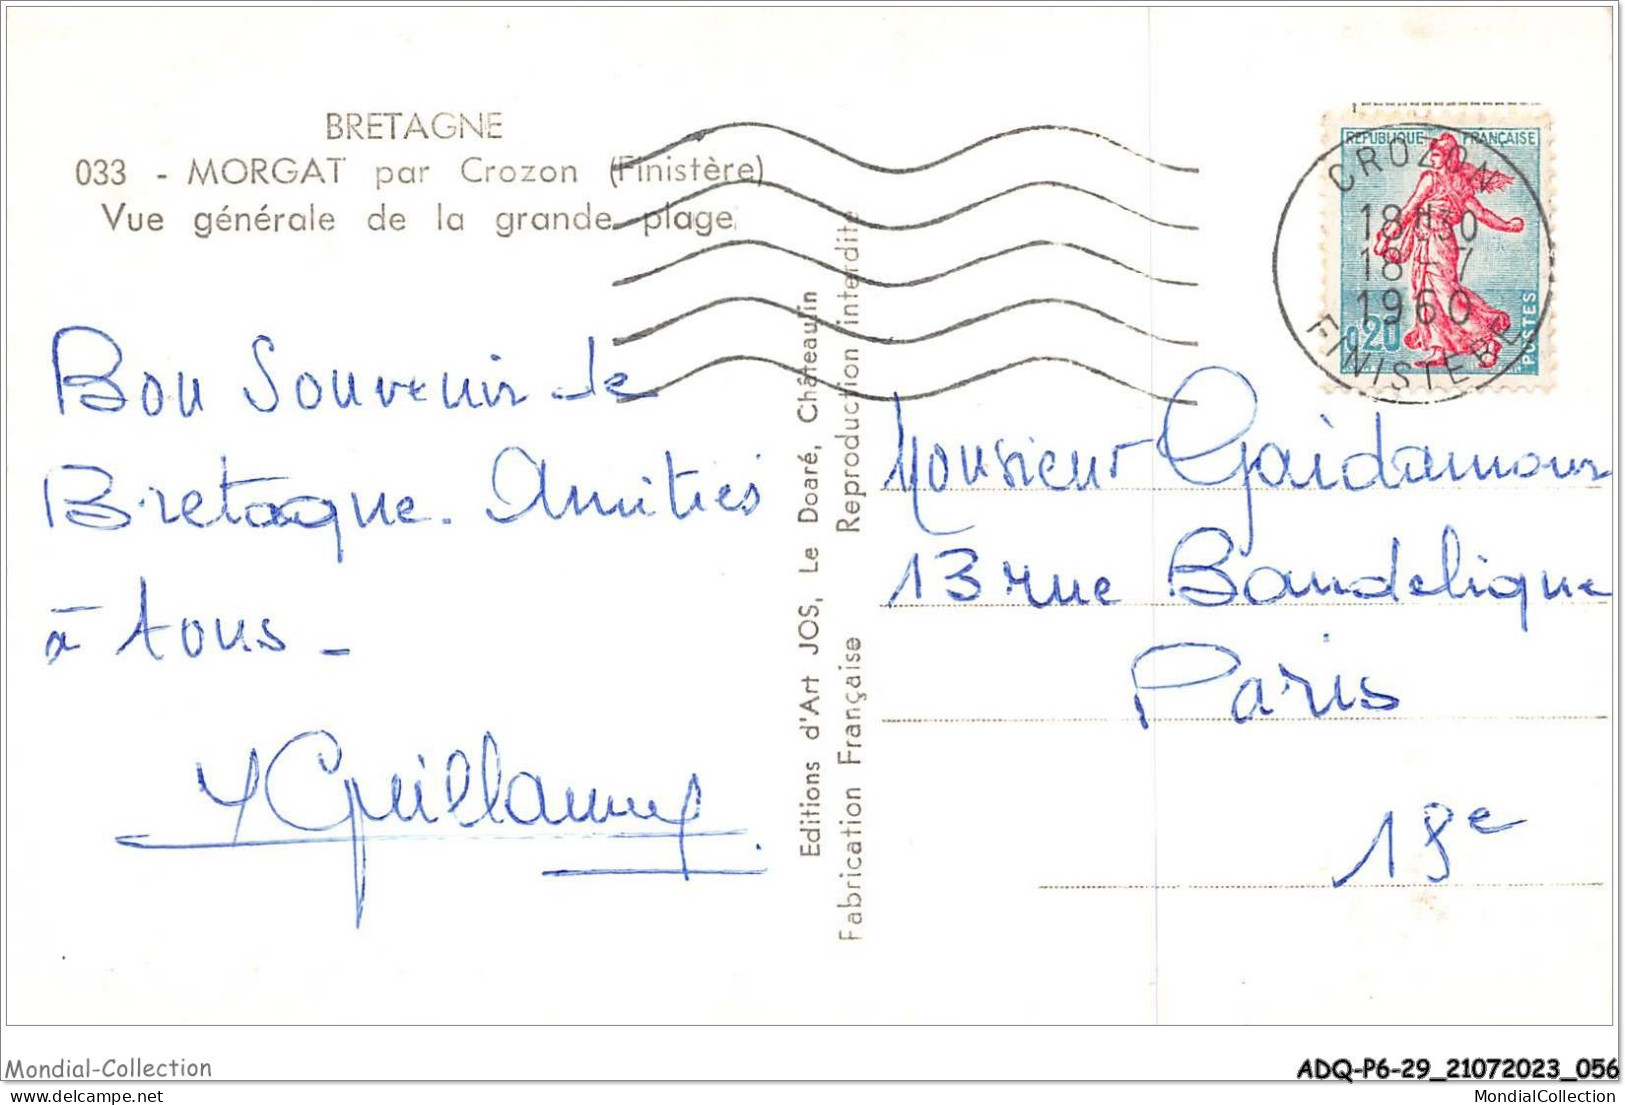 BRETAGNE
033 - MORGAT par Crozon (Finistère)
Vue générale de la grande plage
Bon Souvenir de
Bretagne. Amitiés
à tous -
Editions d'Art JOS, Le Doaré, Châteaulin
Fabrication Française Reproduction interdite
REPUBLIQUE FRANÇAISE
0,20
POSTES
CROZON
18H30
18 - 7
1960
FINISTERE
Monsieur Gaidamour
13 rue Baudelique
Paris
18e
Mondial-Collection
ADQ-P6-29_21072023_056
MondialCollection